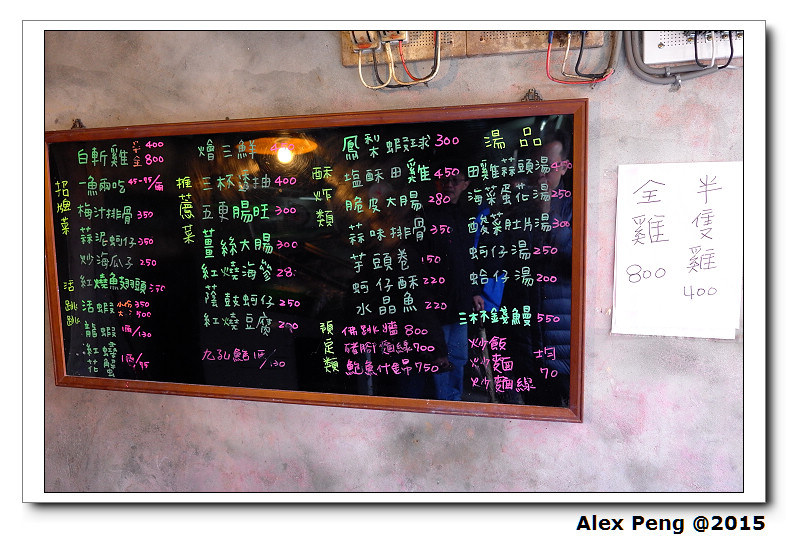 招牌菜
白斬雞 半 400 全 800
一魚兩吃 45-95/兩
梅汁排骨 350
蒜泥蚵仔 350
炒海瓜子 250
紅燒魚翅頭
活跳跳
活蝦 小份 350 大 400
龍蝦 1兩/130
紅蟳
花蟹 1兩/95
推薦菜
燴三鮮
三杯透抽 400
五更腸旺 300
薑絲大腸 300
紅燒海參
蔭鼓蚵仔 250
紅燒豆腐 200
九孔鮑 1兩/130
酥炸類
鳳梨蝦球 300
塩酥田雞 450
脆皮大腸 280
蒜味排骨 350
芋頭卷 150
蚵仔酥 220
水晶魚 220
預定類
佛跳牆 800
豬腳麵線 700
鮑魚什錦 750
湯品
田雞蒜頭湯 450
海菜蛋花湯 250
酸菜肚片湯 300
蚵仔湯 250
蛤仔湯 200
三杯錢鰻 550
炒飯
炒麵 均 70
炒麵線
半隻雞 400
全雞 800
Alex Peng @2015